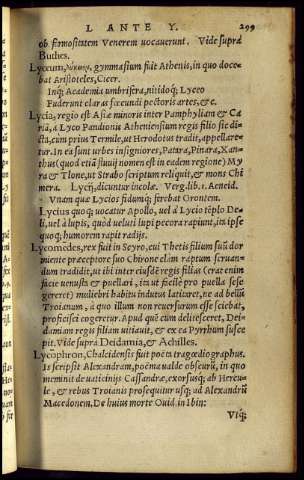 L ANTE Y. 299
ob formositatem Venerem uocauerunt. Vide supra
Buthes.
Lycęum, λύκαιον, gymnasium fuit Athenis, in quo doce
bat Aristoteles, Cicer.
Inq; Academia umbrifera, nitidoq; Lyceo
Fuderunt claras fœcundi pectoris artes, &c.
Lycia, regio est Asiæ minoris inter Pamphyliam & Ca
riā, à Lyco Pandionis Atheniensium regis filio sic di-
cta, cum prius Termile, ut Herodotus tradit, appellare-
tur. In ea sunt urbes insigniores, Patara, Pinara, Xan-
thus (quod etiā fluuij nomen est in eadem regione) My
ra & Tlone, ut Strabo scriptum reliquit, & mons Chi
mera. Lycij, dicuntur incolæ. Verg. lib. 1. Aeneid.
Vnam quæ Lycios fidumq; ferebat Orontem.
Lycius quoq; uocatur Apollo, uel à Lycio tēplo De
li, uel à lupis, quòd ueluti lupi pecora rapiunt, ita ipse
quoq; humorem rapit radijs.
Lycomedes, rex fuit in Scyro, cui Thetis filium suū dor
miente præceptore suo Chirone clam raptum seruan-
dum tradidit, ut ibi inter eiusdē regis filias (erat enim
facie uenusta & puellari, ita ut facilè pro puella sese
gereret) muliebri habitu indutus latitaret, ne ad bellū
Troianum, à quo illum non reuersurum esse sciebat,
proficisci cogeretur. Apud quē cum delitesceret, Dei-
damiam regis filiam uitiauit, & ex ea Pyrrhum susce
pit. Vide supra Deidamia, & Achilles.
Lycophron, Chalcidensis fuit poëta tragœdiographus.
Is scripsit Alexandram, poëma ualde obscurū, in quo
meminit de uaticinijs Cassandræ, exorsusq; ab Hercu-
le, & rebus Troianis prosequitur usq; ad Alexandrū
Macedonem. De huius morte Ouid. in Ibin:
Vtq;